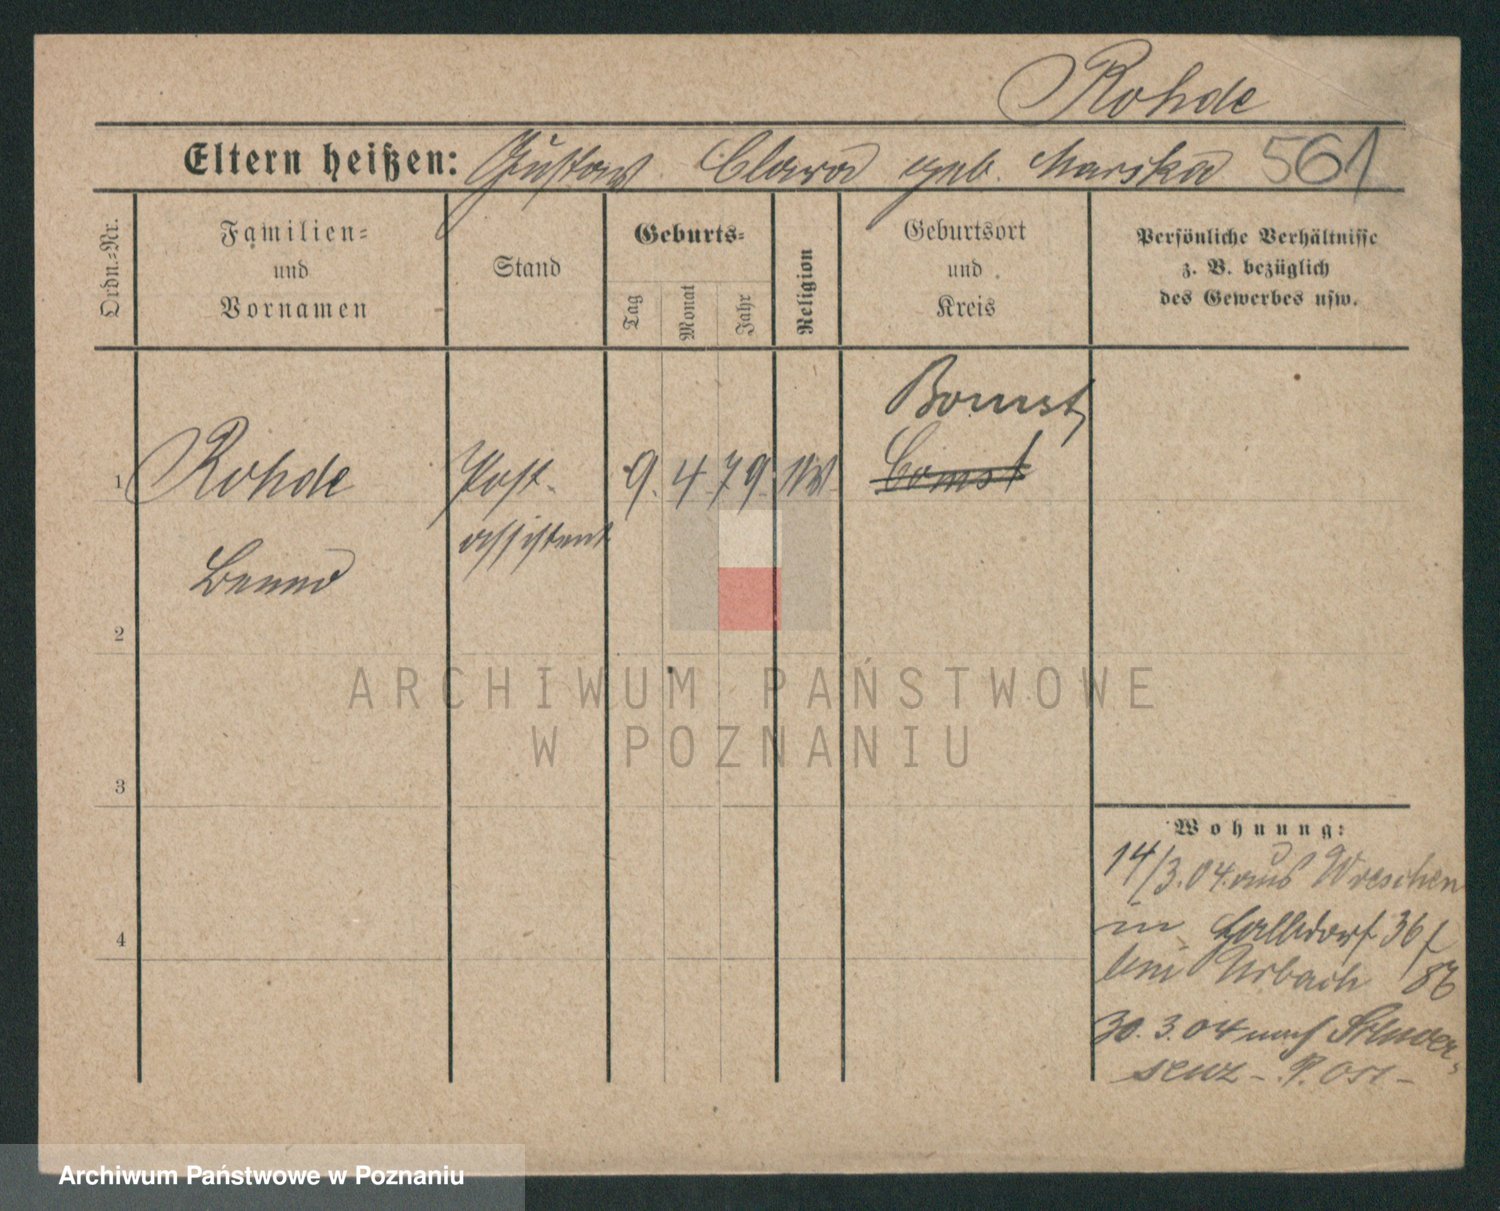 Rohde
Eltern heißen: Gustav Clara geb. Marska 561
Ordn.-Nr.
Familien-
und
Vornamen
Stand
Geburts-
Tag
Monat
Jahr
Religion
Geburtsort
und
Kreis
Persönliche Verhältnisse
z. B. bezüglich
des Gewerbes usw.
Bomst
1 Rohde Post- 9. 4. 79. Comst
assistent
Benno
2
3
4
Wohnung:
14/3.04. aus Wreschen
in 36
bei Urbach 86
30.3.04 nach Schwer-
senz - P. Ost -
ARCHIWUM PAŃSTWOWE
W POZNANIU
Archiwum Państwowe w Poznaniu